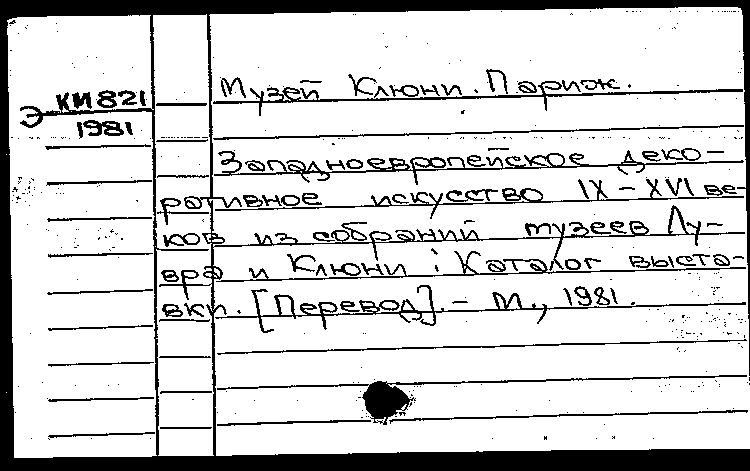 Музей Клюни. Париж.
Э КИ821
1981
Западноевропейское деко-
ративное искусство IX – XVI ве-
ков из собраний музеев Лу-
вра и Клюни : Каталог выста-
вки. [Перевод]. – М., 1981.